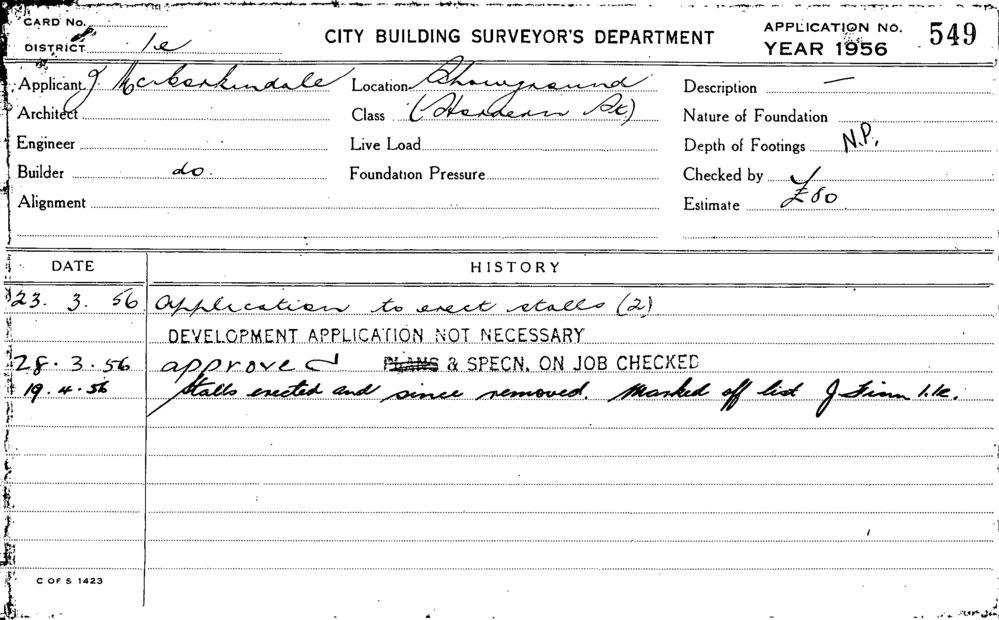 CARD No.
DISTRICT 1e
CITY BUILDING SURVEYOR'S DEPARTMENT
APPLICATION No. 549
YEAR 1956
Applicant J
Location Showground
Description —
Architect
Class (Hordern St.)
Nature of Foundation
Engineer
Live Load
Depth of Footings N.P.
Builder do.
Foundation Pressure
Checked by
Alignment
Estimate £80
DATE HISTORY
23. 3. 56 Application to erect stalls (2)
DEVELOPMENT APPLICATION NOT NECESSARY
28. 3. 56 approved PLANS & SPECN. ON JOB CHECKED
19. 4. 56 Stalls erected and since removed. Marked off list J Finn 1.e.
C OF S 1423